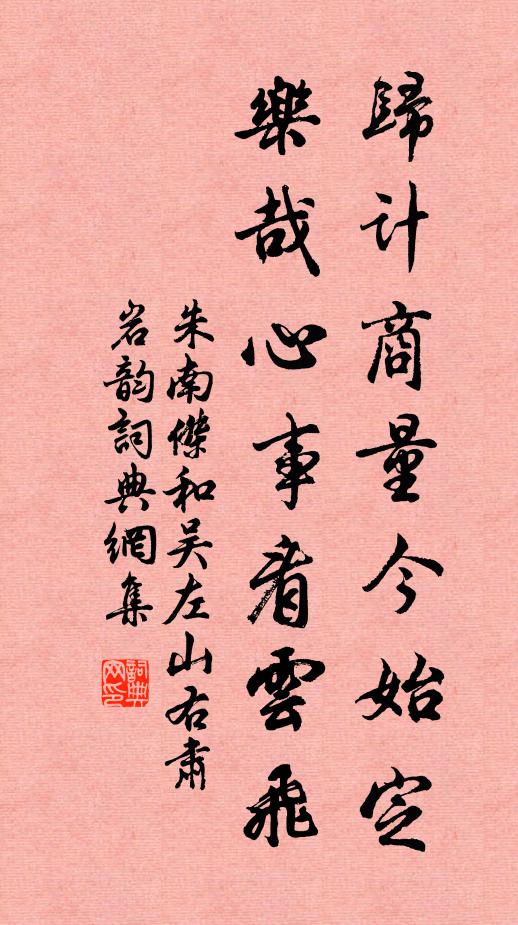 歸計商量今始定
樂哉心事看雲飛
朱南傑和吴左山右肅
岩韵詞典網集
詞典
网印